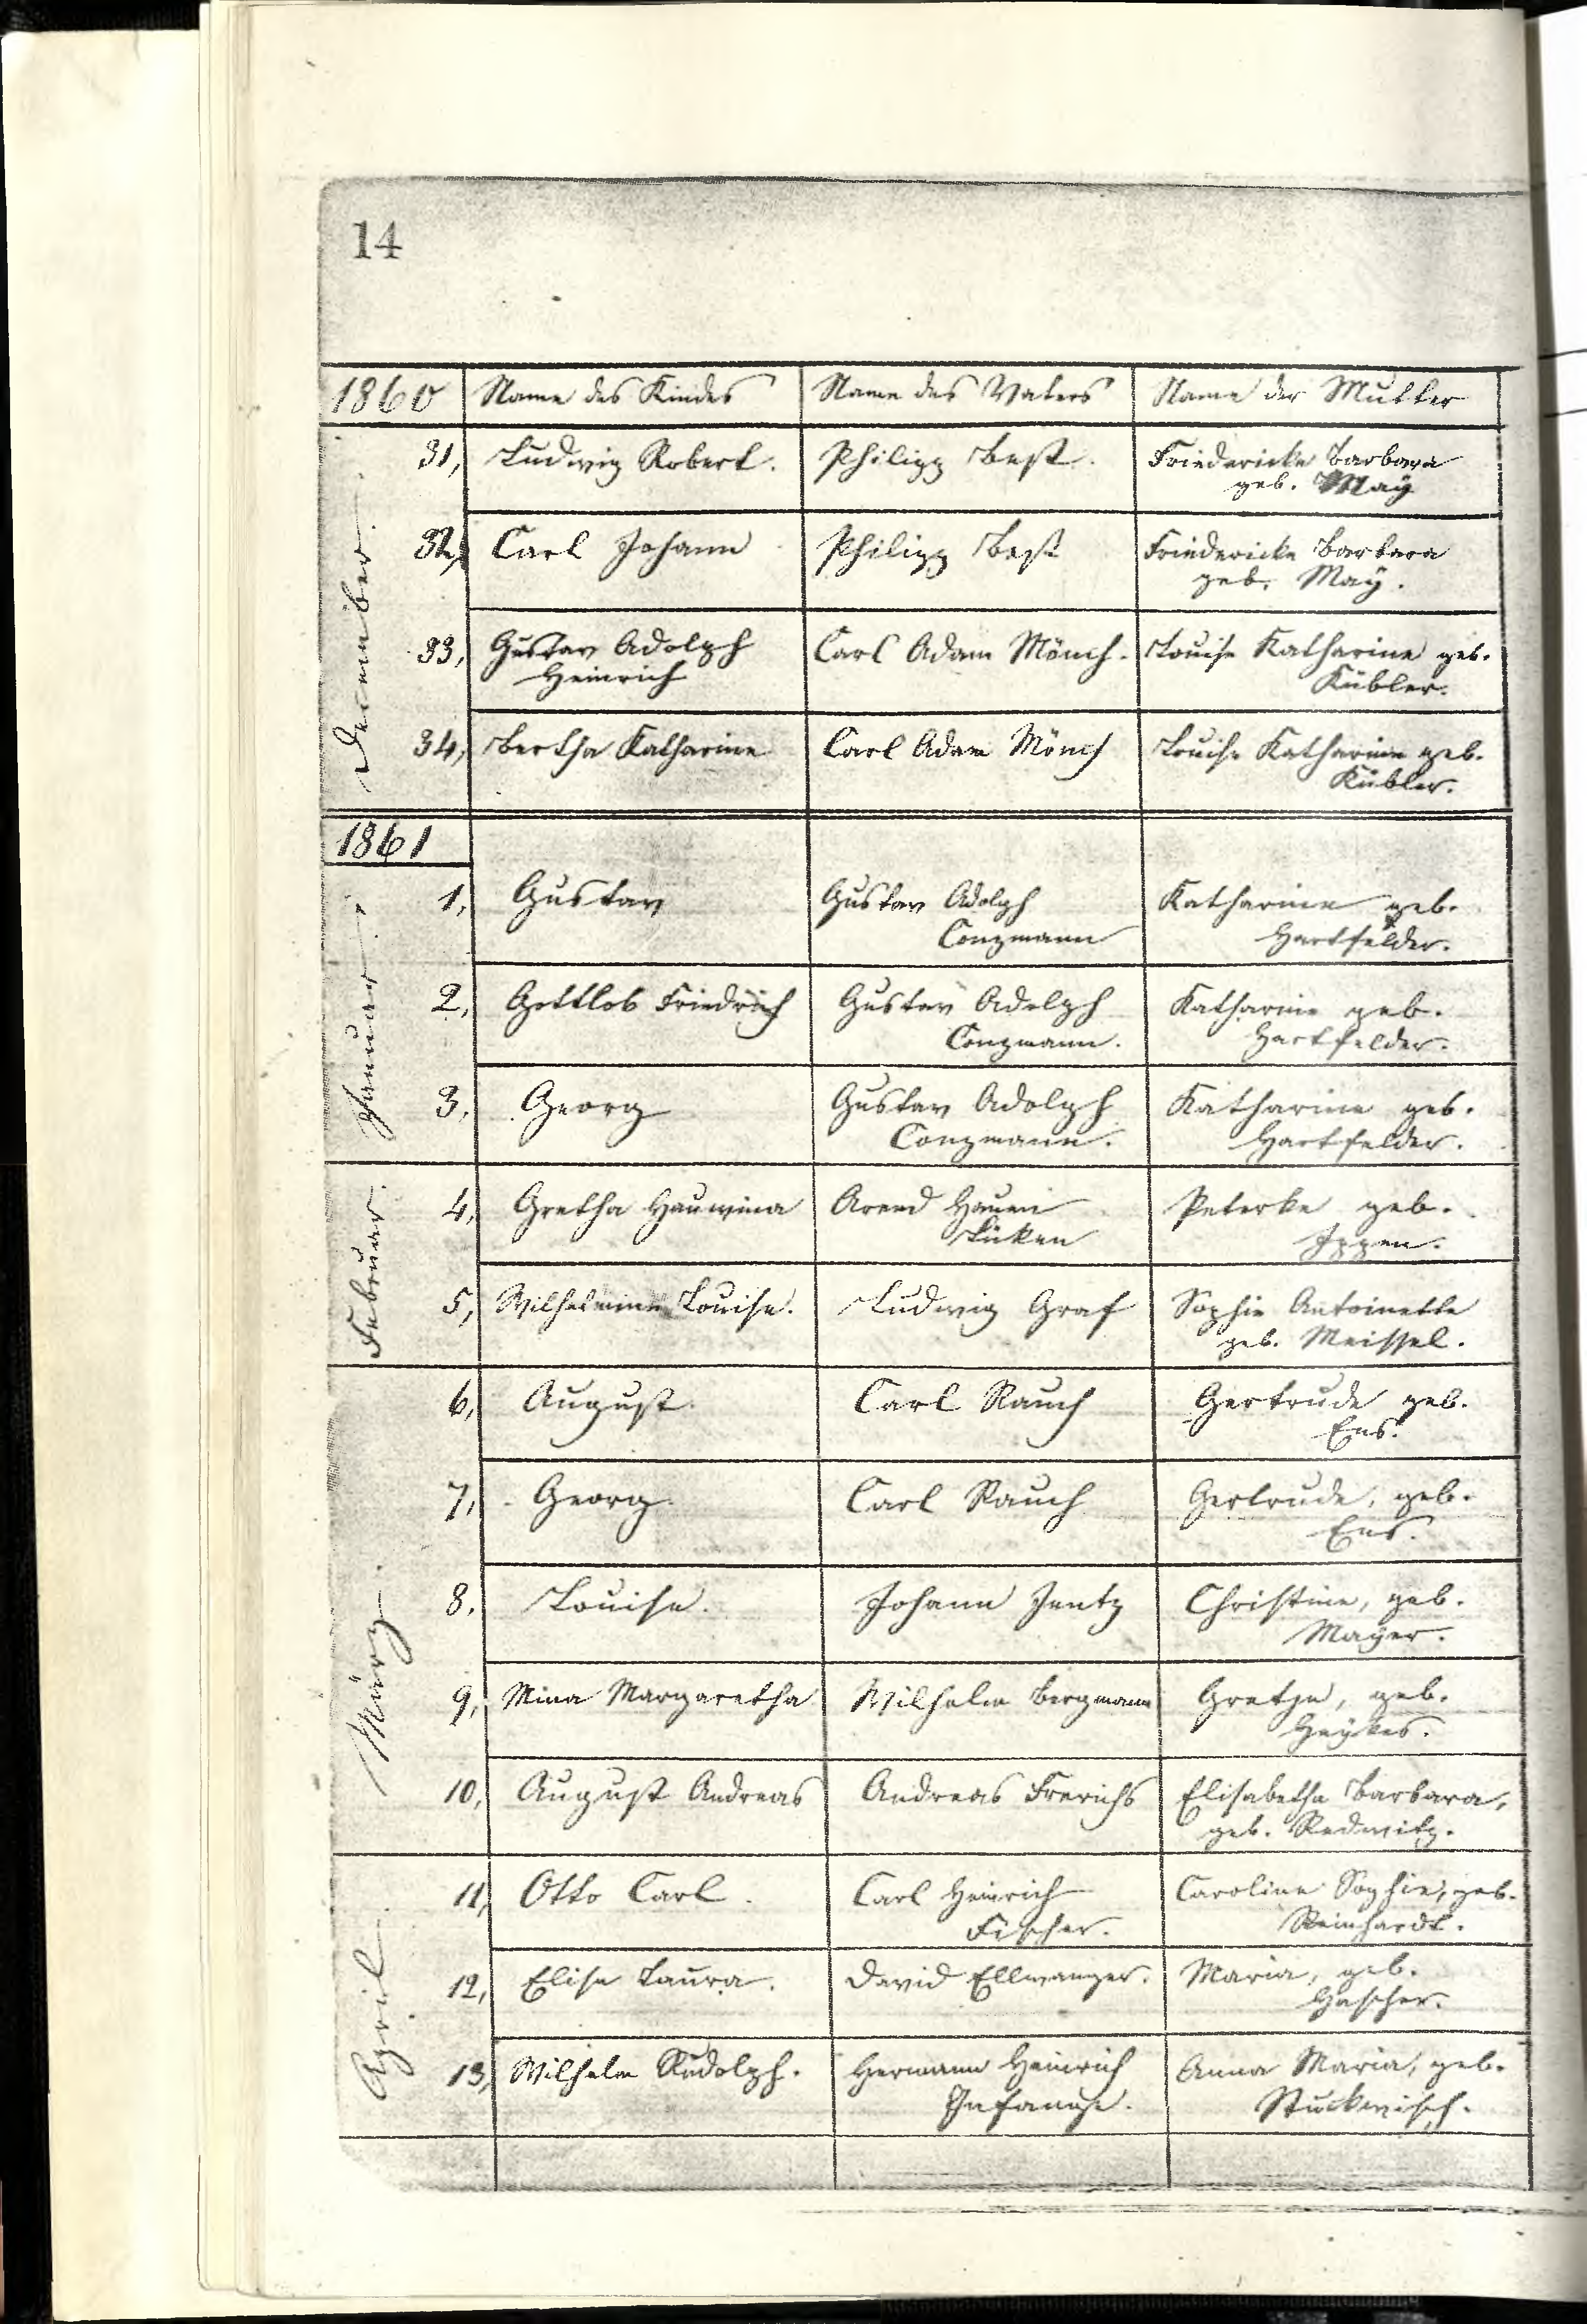 14
1860 Name des Kindes Name des Vaters Name der Mutter
December.
31, Ludwig Robert. Philipp Best. Friedericke Barbara
geb. Maÿ
32, Carl Johann Philipp Best Friedericke Barbara
geb. Maÿ.
33, Gustav Adolph Carl Adam Mönch. Louise Katharine geb.
Heinrich Kübler.
34, Bertha Katharine Carl Adam Mönch Louise Katharine geb.
Kübler.
1861
Januar.
1, Gustav Gustav Adolph Katharine geb.
Conzmann Hartfelder.
2, Gottlob Friedrich Gustav Adolph Katharine geb.
Conzmann. Hartfelder.
3, Georg Gustav Adolph Katharine geb.
Conzmann. Hartfelder.
Februar.
4, Gretha Hauwina Arend Peterke geb.
Lüken Ippen.
5, Wilhelmine Louise. Ludwig Graf Sophie Antoinette
geb. Meissel.
März.
6, August. Carl Rauch Gertrude geb.
Ens.
7, Georg. Carl Rauch Gertrude, geb.
Ens.
8. Louise. Johann Jentz Christine, geb.
Mayer.
9, Mina Margaretha Wilhelm Bergmann Gretje, geb.
Heÿkes.
10, August Andreas Andreas Frerichs Elisabetha Barbara,
geb. Redwitz.
April.
11, Otto Carl. Carl Heinrich Caroline Sophie, geb.
Fischer. Reinhardt.
12, Elise Laura. David Ellwanger. Maria, geb.
Hascher.
13, Wilhelm Rudolph. Hermann Heinrich Anna Maria, geb.
Stuckwisch.